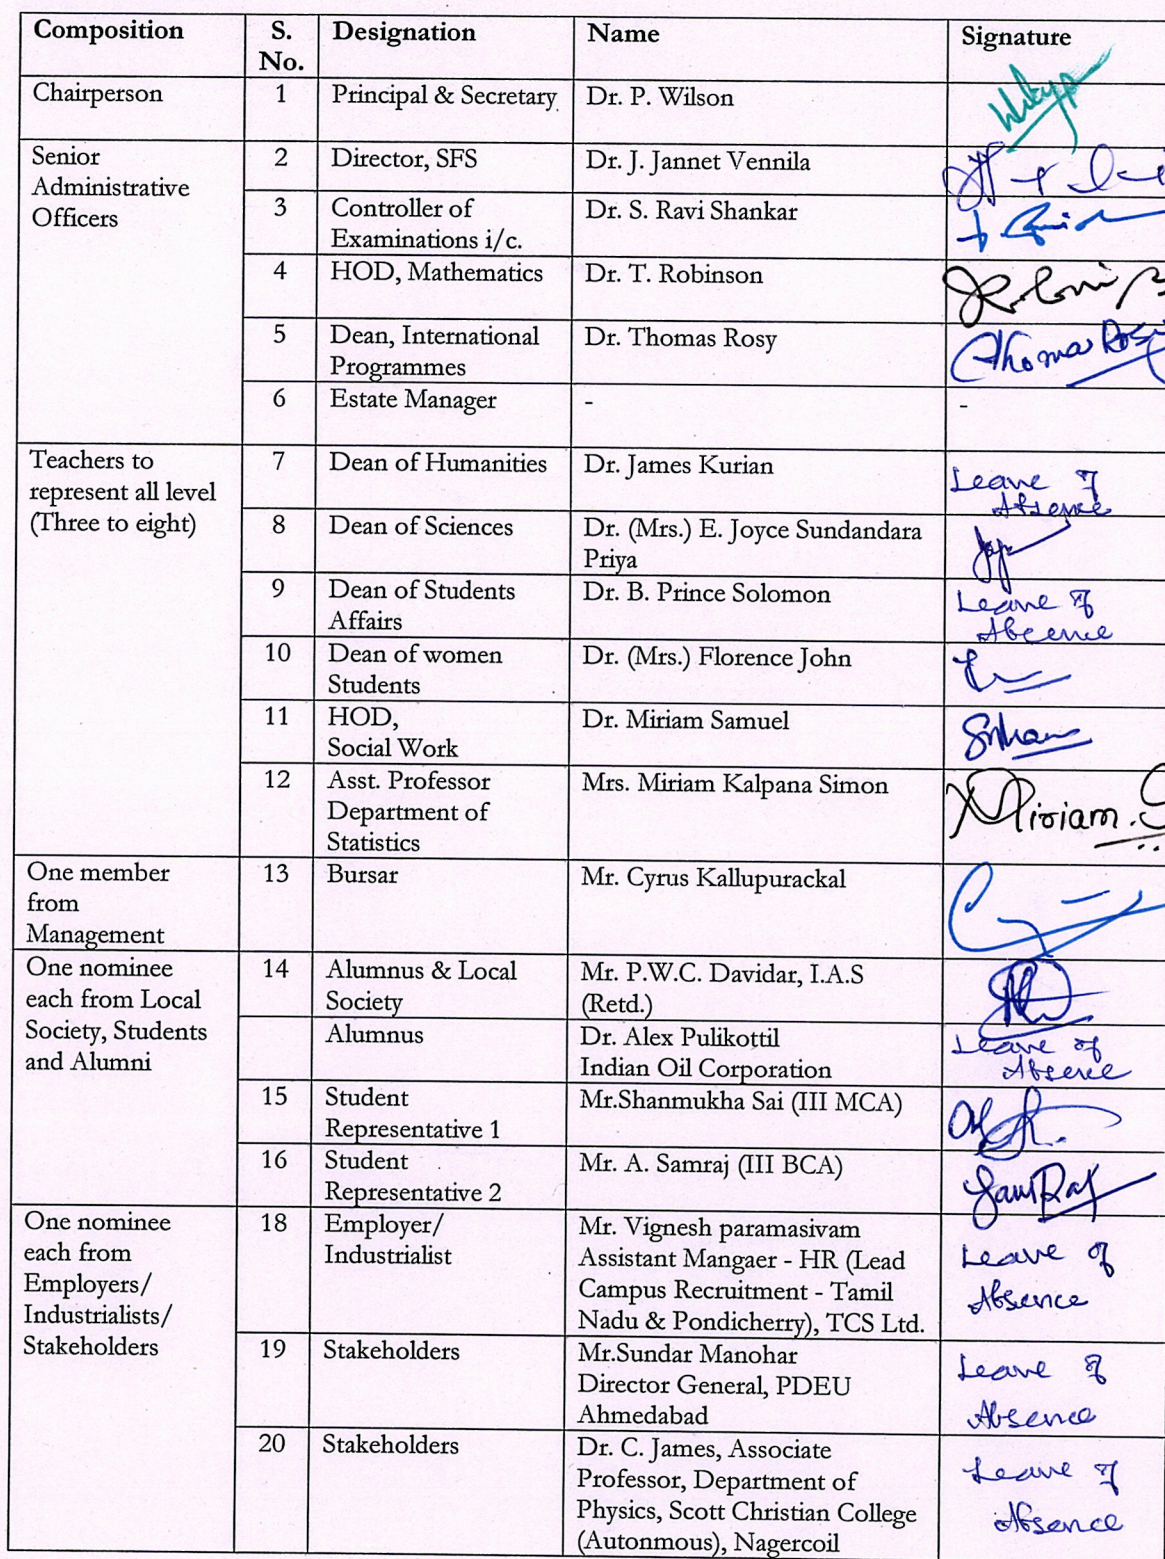 Composition S. No. Designation Name Signature
Chairperson 1 Principal & Secretary Dr. P. Wilson
Senior Administrative Officers 2 Director, SFS Dr. J. Jannet Vennila
3 Controller of Examinations i/c. Dr. S. Ravi Shankar
4 HOD, Mathematics Dr. T. Robinson
5 Dean, International Programmes Dr. Thomas Rosy Thomas Rosy
6 Estate Manager - -
Teachers to represent all level (Three to eight) 7 Dean of Humanities Dr. James Kurian Leave of Absence
8 Dean of Sciences Dr. (Mrs.) E. Joyce Sundandara Priya
9 Dean of Students Affairs Dr. B. Prince Solomon Leave of Absence
10 Dean of women Students Dr. (Mrs.) Florence John
11 HOD, Social Work Dr. Miriam Samuel
12 Asst. Professor Department of Statistics Mrs. Miriam Kalpana Simon Miriam.S
One member from Management 13 Bursar Mr. Cyrus Kallupurackal
One nominee each from Local Society, Students and Alumni 14 Alumnus & Local Society Mr. P.W.C. Davidar, I.A.S (Retd.)
Alumnus Dr. Alex Pulikottil Indian Oil Corporation Leave of Absence
15 Student Representative 1 Mr.Shanmukha Sai (III MCA)
16 Student Representative 2 Mr. A. Samraj (III BCA) SamRaj
One nominee each from Employers/ Industrialists/ Stakeholders 18 Employer/ Industrialist Mr. Vignesh paramasivam Assistant Mangaer - HR (Lead Campus Recruitment - Tamil Nadu & Pondicherry), TCS Ltd. Leave of Absence
19 Stakeholders Mr.Sundar Manohar Director General, PDEU Ahmedabad Leave of Absence
20 Stakeholders Dr. C. James, Associate Professor, Department of Physics, Scott Christian College (Autonmous), Nagercoil Leave of Absence